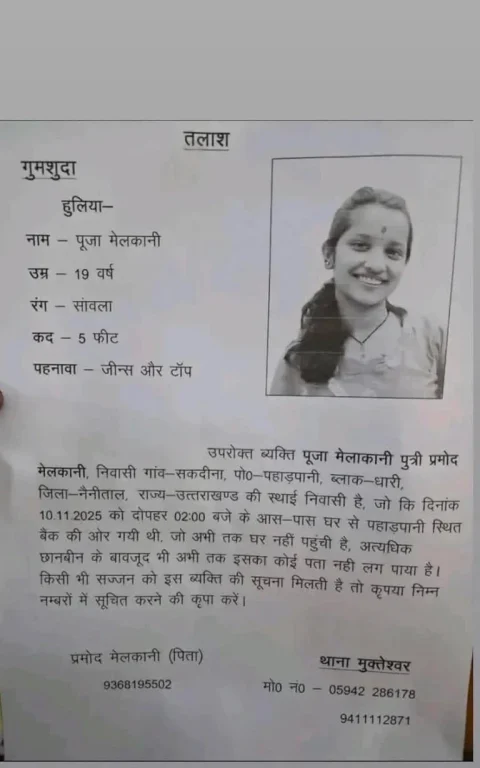 तलाश
गुमशुदा
हुलिया–
नाम – पूजा मेलकानी
उम्र – 19 वर्ष
रंग – सांवला
कद – 5 फीट
पहनावा – जीन्स और टॉप
उपरोक्त ब्यक्ति पूजा मेलाकानी पुत्री प्रमोद
मेलकानी, निवासी गांव–सकदीना, पो0–पहाड़पानी, ब्लाक–धारी,
जिला–नैनीताल, राज्य–उत्तराखण्ड की स्थाई निवासी है, जो कि दिनांक
10.11.2025 को दोपहर 02:00 बजे के आस–पास घर से पहाड़पानी स्थित
बैंक की ओर गयी थी. जो अभी तक घर नहीं पहुंची है, अत्यधिक
छानबीन के बावजूद भी अभी तक इसका कोई पता नही लग पाया है।
किसी भी सज्जन को इस ब्यक्ति की सूचना मिलती है तो कृपया निम्न
नम्बरों में सूचित करने की कृपा करें।
प्रमोद मेलकानी (पिता)
9368195502
थाना मुक्तेश्वर
मो0 नं0 – 05942 286178
9411112871